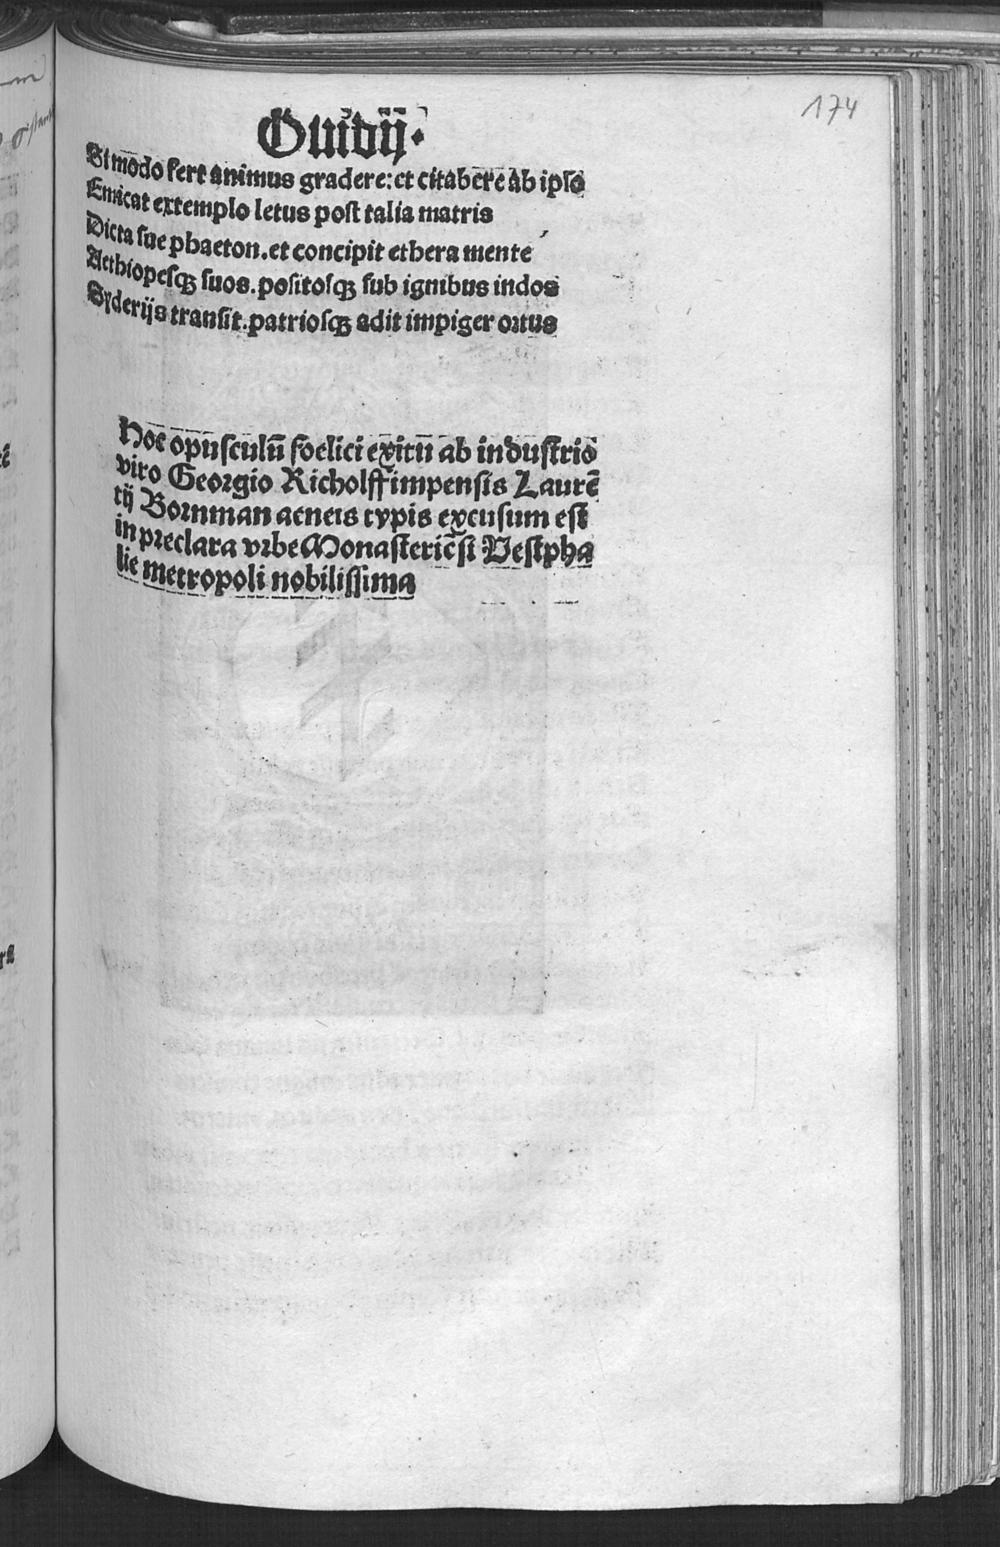 174
Ouidij.
Si modo fert animus gradere: et citabere ab ipso
Emicat extemplo letus post talia matris
Dicta sue phaeton. et concipit ethera mente
Aethiopesqꝫ suos. positosqꝫ sub ignibus indos
Syderijs transit. patriosqꝫ adit impiger ortus
Hoc opusculū foelici exitu ab industrio
viro Georgio Richolff impensis Laurē
tij Bornman aeneis typis excusum est
in preclara vrbe Monasteriēsi Vestpha
lie metropoli nobilissima